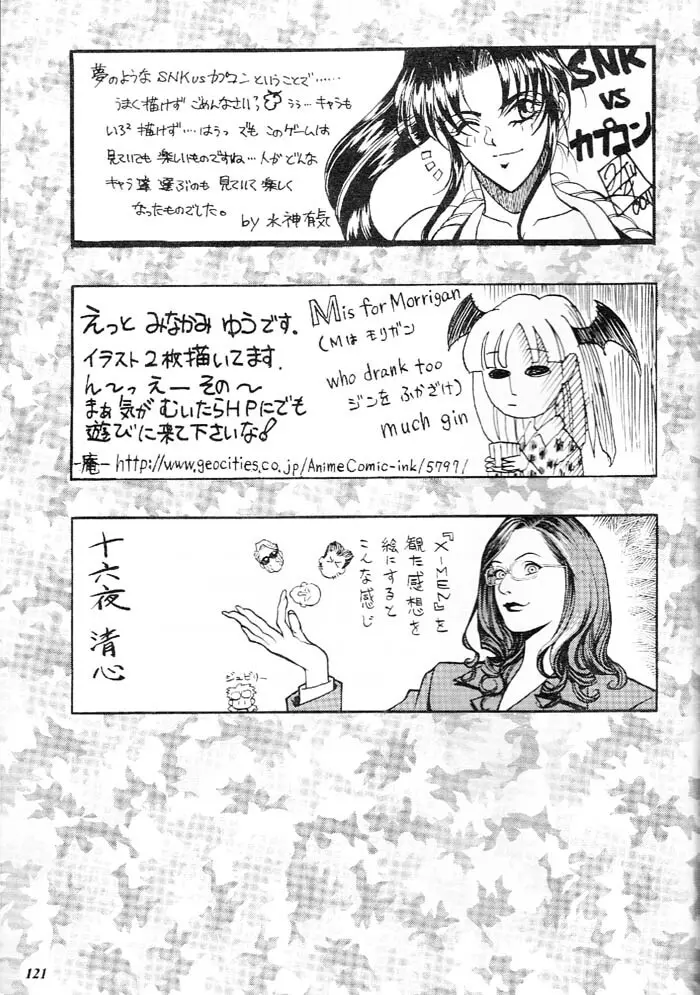 夢のような SNK vs カプコン ということで……
うまく描けず ごめんなさい? うぅ… キャラも
いろ²描けず…はうっ でも このゲームは
見ていても 楽しいものですね…人が どんな
キャラ達 選ぶのも 見ていて 楽しく
なったものでした。
by 水神有気
SNK
VS
カプコン
えっと みなかみ ゆうです.
イラスト2枚描いてます.
ん～っ えー その～
まぁ 気が むいたらHPにでも
遊びに来て下さいな!
-庵- http://www.geocities.co.jp/AnimeComic-ink/5797/
M is for Morrigan
(Mは モリガン
who drank too
ジンを ふかざけ)
much gin
『X-MEN』を
観た感想を
絵にすると
こんな感じ
ジュビリー
十六夜 清心
121